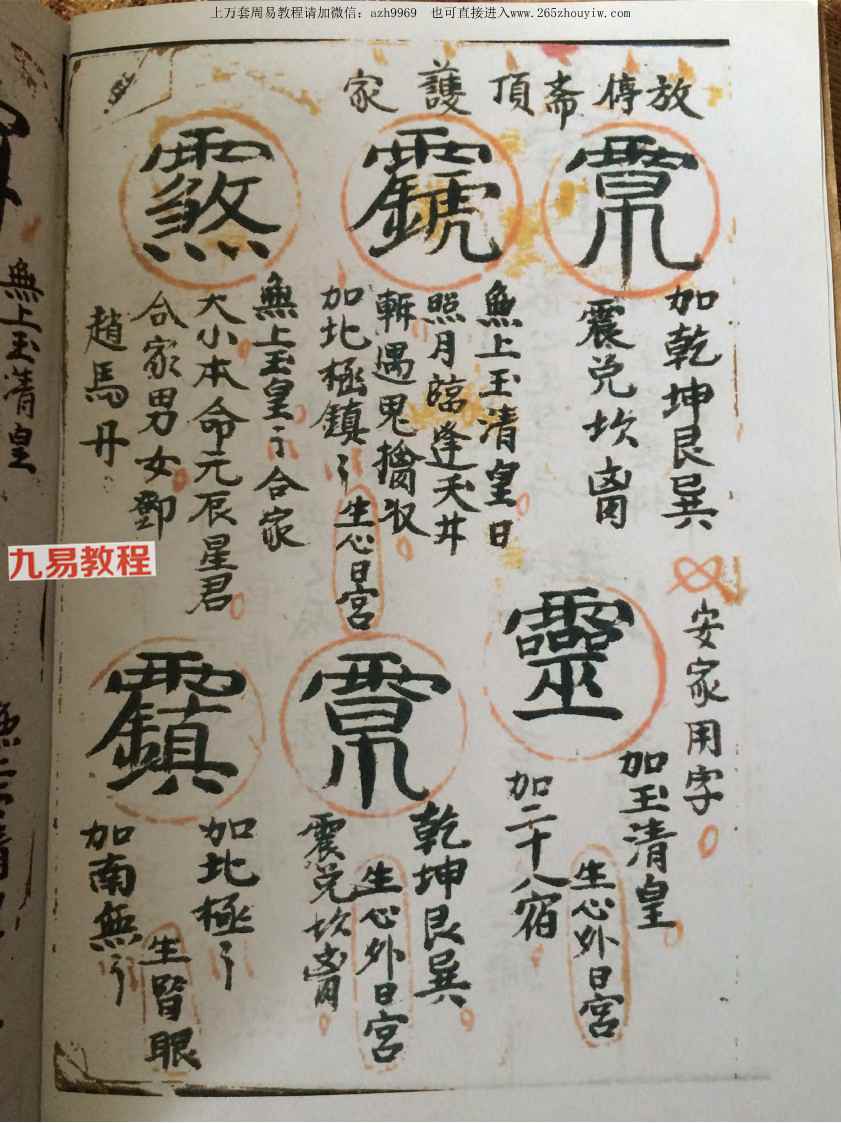 上万套周易教程请加微信：azh9969　也可直接进入www.265zhouyiw.com
放停斋頂護家
加乾坤艮巽
震兑坎离
無上玉清皇日
照月臨逢天井
斬遇鬼擒收
加北極鎮
生心日宮
無上玉皇合家
大小本命元辰星君
合家男女鄧
趙馬丹
安家用字
靈
加玉清皇
生心外日宮
加二十八宿
乾坤艮巽
生心外日宮
震兑坎离
加北極
生腎眼
加南無
九易教程
無上玉清皇